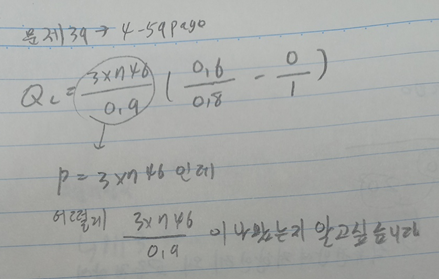 문제39 → 4-59page
Qc = 3×746 / 0.9 ( 0.6 / 0.8 - 0 / 1 )
P = 3×746 인데
어떻게 3×746 / 0.9 이 나왔는지 알고싶습니다